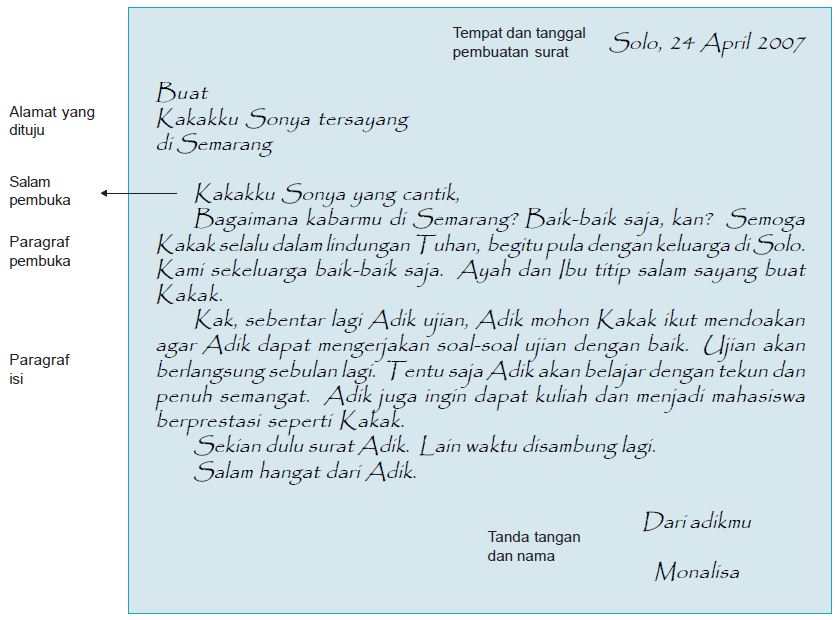 Tempat dan tanggal
pembuatan surat
Solo, 24 April 2007
Alamat yang
dituju
Buat
Kakakku Sonya tersayang
di Semarang
Salam
pembuka
Kakakku Sonya yang cantik,
Paragraf
pembuka
Bagaimana kabarmu di Semarang? Baik-baik saja, kan? Semoga
Kakak selalu dalam lindungan Tuhan, begitu pula dengan keluarga di Solo.
Kami sekeluarga baik-baik saja. Ayah dan Ibu titip salam sayang buat
Kakak.
Paragraf
isi
Kak, sebentar lagi Adik ujian, Adik mohon Kakak ikut mendoakan
agar Adik dapat mengerjakan soal-soal ujian dengan baik. Ujian akan
berlangsung sebulan lagi. Tentu saja Adik akan belajar dengan tekun dan
penuh semangat. Adik juga ingin dapat kuliah dan menjadi mahasiswa
berprestasi seperti Kakak.
Sekian dulu surat Adik. Lain waktu disambung lagi.
Salam hangat dari Adik.
Dari adikmu
Tanda tangan
dan nama
Monalisa